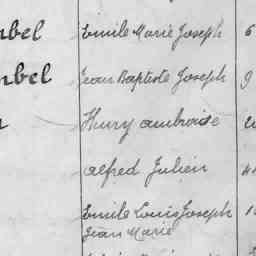 nbel Emile Marie Joseph 6
nbel Jean Baptiste Joseph 9
Henry ambroise
alfred Julien
Emile Louis Joseph 1
Jean Marie